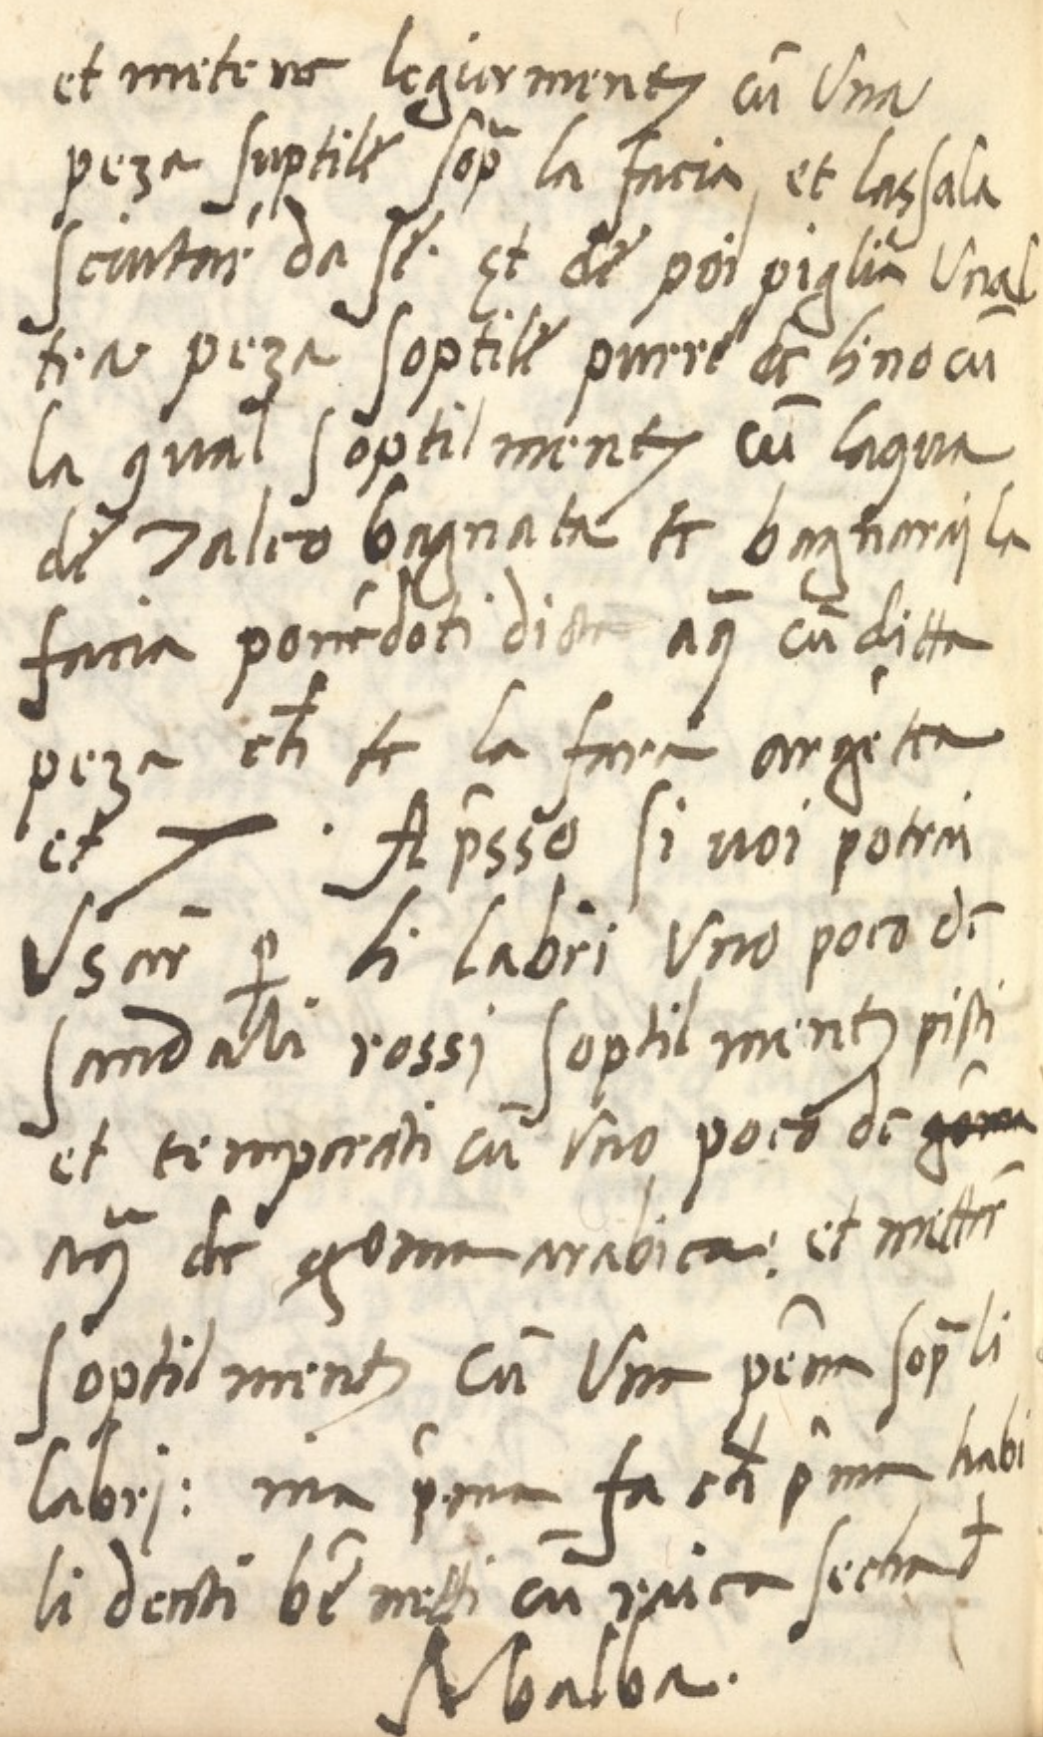 et metene legiermente cū Una
peza suptile sop̃ la facia et lassala
sciutar da se. et de poi piglia Unal
tra peza soptile purre de lino cū
la qual soptilmente cū laqua
de talco bagnata te bagnaraj la
facia ponẽdoti dicta aq̃ cū ditta
peza ch̃ te la fara argẽtea
et . Ap̃sso si uoi potrai
Usar ꝑ li labri Uno poco de
sandalli rossj soptilmente pisti
et temperati cū Uno poco de
aq̃ de goma arabica: et metter
soptilmente cū Una pẽna sop̃ li
labrj: ma p̃ma fa ch̃ p̃ma habi
li denti bẽ netti cū secha